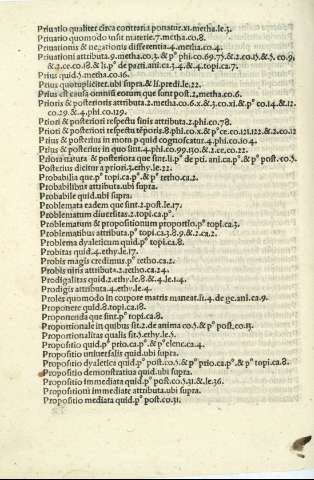 Priuatio qualiter circa contraria ponatur.vi.metha.le.3.
Priuatio quomodo vnse materie.7.metha.co.8.
Priuationis & negationis differentia.4.metha.co.4.
Priuationi attributa.9.metha.co.3.& pº phi.co.69.75.&.2.co.15.& 5. co.9.
&.2.ce.co.18.& li.pº de parti.ani.ca.3.4.& .4.topi.ca.7.
Prius quid.5.metha.co.16.
Prius quotupliciter.ubi supra.& li.predi.le.22.
Prius est causa omnis eorum que sunt post.2.metha.co.6.
Prioris & posterioris attributa.2.metha.co.6.x.& 5.co.xi.& pº co.14.&.12.
co.29.& 4.phi.co.129.
Priori & posteriori respectu finis attributa.2.phi.co.78.
Priori & posteriori respectu tēporis.8.phi.co.x.&.pº ce.co.121.122.&.2.co.12
Prius & posterius in motu p quid cognoscatur.4.phi.co.104.
Prius & posterius in quo sint.4.phi.co.99.130.&.2.ce.co.22.
Priora natura & posteriora que sint.li.pº de pti. ani.ca.pº.& pº post.co.5.
Posterius dicitur a priori.3.ethy.le.22.
Probabilia que.pº topi.ca.pº.& pº retho.ca.2.
Probabilibus attributa.ubi supra.
Probabile quid.ubi supra.
Problemata eadem que sint.2.post.le.17.
Problematum diuersitas.2.topi.ca.pº.
Problematum & propositionum proportio.pº topi.ca.3.
Problematibus attributa.pº topi.ca.3.8.9.&.2.ca.2.
Problema dyaleticum quid.pº topi.ca.8.
Probitas quid.4.ethy.le.17.
Probis magis credimus.pº retho.ca.2.
Probis uiris attributa.2.retho.ca.24.
Prodigalitas quid.2.ethy.le.8.& 4.le.1.4.
Prodigis attributa.4.ethy.le.4.
Proles quomodo in corpore matris maneat.li.4.de ge.ani.ca.9.
Proponere quid.8.topi.ca.18.
Proponenda que sint.pº topi.ca.8.
Proportionale in quibus sit.2.de anima co.5.& pº post.co.13.
Proportionalitas qualis sit.5.ethy.le.5.
Propositio quid.pº prio.ca.pº.& pº elenc.ca.4.
Propositio uniuersalis quid.ubi supra.
Propositio dyaletica quid.pº post.co.5.& pº prio.ca.pº.& pº topi.ca.8.
Propositio demonstratiua quid.ubi supra.
Propositio immediata quid.pº post.co.5.31.& le.36.
Propositioni immediate attributa.ubi supra.
Propositio mediata quid.pº post.co.31.